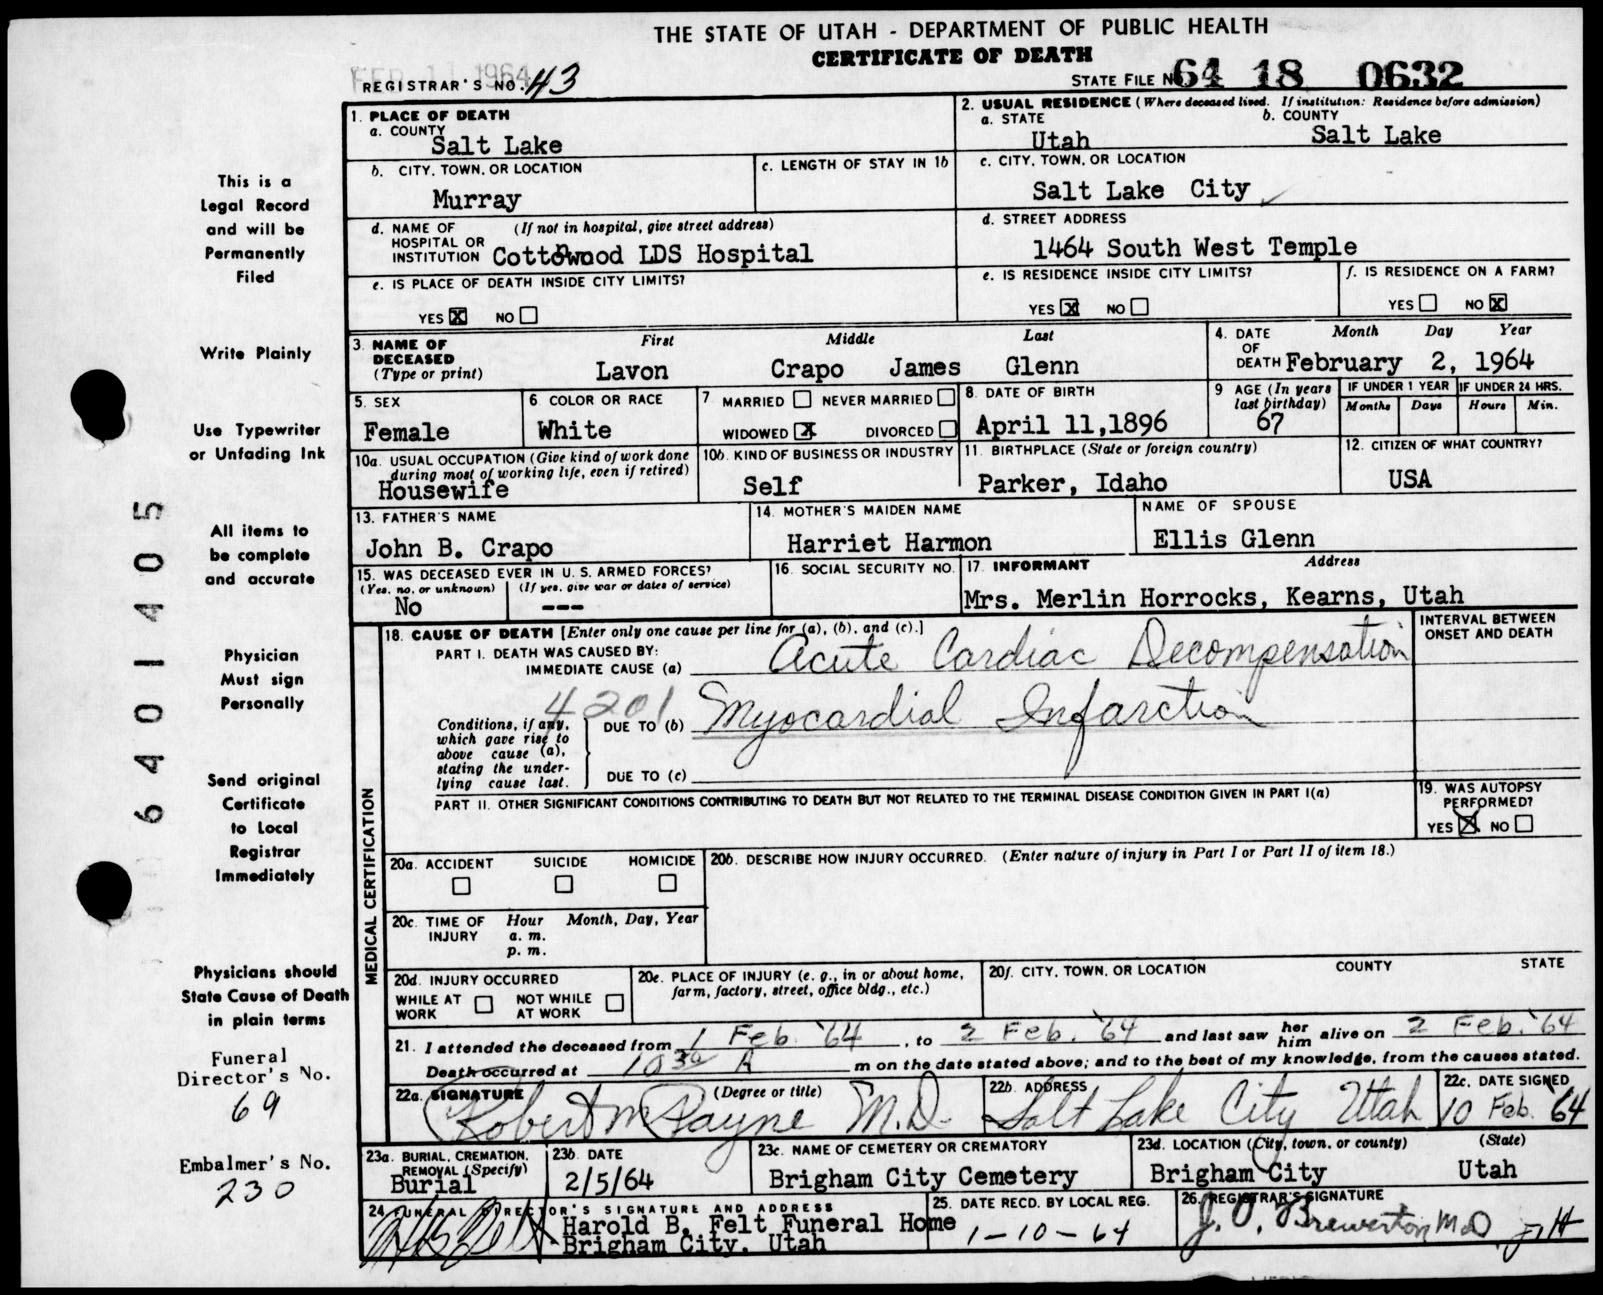 THE STATE OF UTAH - DEPARTMENT OF PUBLIC HEALTH
CERTIFICATE OF DEATH
FEB 11 1964
REGISTRAR'S NO. 43
STATE FILE NO 64 18 0632
1. PLACE OF DEATH
a. COUNTY
Salt Lake
2. USUAL RESIDENCE (Where deceased lived. If institution: Residence before admission)
a. STATE b. COUNTY
Utah Salt Lake
b. CITY, TOWN, OR LOCATION
Murray
c. LENGTH OF STAY IN 1b
c. CITY, TOWN, OR LOCATION
Salt Lake City
d. NAME OF HOSPITAL OR INSTITUTION (If not in hospital, give street address)
Cottonwood LDS Hospital
d. STREET ADDRESS
1464 South West Temple
e. IS PLACE OF DEATH INSIDE CITY LIMITS?
YES X NO
e. IS RESIDENCE INSIDE CITY LIMITS?
YES X NO
f. IS RESIDENCE ON A FARM?
YES NO X
3. NAME OF DECEASED (Type or print)
First Middle Last
Lavon Crapo James Glenn
4. DATE OF DEATH
Month Day Year
February 2, 1964
5. SEX
Female
6. COLOR OR RACE
White
7 MARRIED NEVER MARRIED
WIDOWED X DIVORCED
8. DATE OF BIRTH
April 11,1896
9 AGE (In years last birthday)
67
IF UNDER 1 YEAR IF UNDER 24 HRS.
Months Days Hours Min.
10a. USUAL OCCUPATION (Give kind of work done during most of working life, even if retired)
Housewife
10b. KIND OF BUSINESS OR INDUSTRY
Self
11. BIRTHPLACE (State or foreign country)
Parker, Idaho
12. CITIZEN OF WHAT COUNTRY?
USA
13. FATHER'S NAME
John B. Crapo
14. MOTHER'S MAIDEN NAME
Harriet Harmon
NAME OF SPOUSE
Ellis Glenn
15. WAS DECEASED EVER IN U. S. ARMED FORCES?
(Yes, no, or unknown) (If yes, give war or dates of service)
No ---
16. SOCIAL SECURITY NO.
17. INFORMANT Address
Mrs. Merlin Horrocks, Kearns, Utah
MEDICAL CERTIFICATION
18. CAUSE OF DEATH [Enter only one cause per line for (a), (b), and (c).]
INTERVAL BETWEEN ONSET AND DEATH
PART I. DEATH WAS CAUSED BY:
IMMEDIATE CAUSE (a) Acute Cardiac Decompensation
4201
Conditions, if any, which gave rise to above cause (a), stating the underlying cause last.
DUE TO (b) Myocardial Infarction
DUE TO (c)
PART II. OTHER SIGNIFICANT CONDITIONS CONTRIBUTING TO DEATH BUT NOT RELATED TO THE TERMINAL DISEASE CONDITION GIVEN IN PART I(a)
19. WAS AUTOPSY PERFORMED?
YES X NO
20a. ACCIDENT SUICIDE HOMICIDE
20b. DESCRIBE HOW INJURY OCCURRED. (Enter nature of injury in Part I or Part II of item 18.)
20c. TIME OF INJURY Hour Month, Day, Year
a. m.
p. m.
20d. INJURY OCCURRED
WHILE AT WORK NOT WHILE AT WORK
20e. PLACE OF INJURY (e. g., in or about home, farm, factory, street, office bldg., etc.)
20f. CITY, TOWN, OR LOCATION COUNTY STATE
21. I attended the deceased from 1 Feb. '64, to 2 Feb. '64 and last saw her him alive on 2 Feb. '64
Death occurred at 10 30 A m on the date stated above; and to the best of my knowledge, from the causes stated.
22a. SIGNATURE (Degree or title)
Robert M Rayne M.D.
22b. ADDRESS
Salt Lake City Utah
22c. DATE SIGNED
10 Feb. '64
23a. BURIAL, CREMATION, REMOVAL (Specify)
Burial
23b. DATE
2/5/64
23c. NAME OF CEMETERY OR CREMATORY
Brigham City Cemetery
23d. LOCATION (City, town, or county) (State)
Brigham City Utah
24 FUNERAL DIRECTOR'S SIGNATURE AND ADDRESS
Harold B. Felt Funeral Home
Brigham City. Utah
25. DATE RECD. BY LOCAL REG.
1-10-64
26. REGISTRAR'S SIGNATURE
J. O. Brewerton M.D.
This is a
Legal Record
and will be
Permanently
Filed
Write Plainly
Use Typewriter
or Unfading Ink
All items to
be complete
and accurate
Physician
Must sign
Personally
Send original
Certificate
to Local
Registrar
Immediately
Physicians should
State Cause of Death
in plain terms
Funeral
Director's No.
69
Embalmer's No.
230
6401405